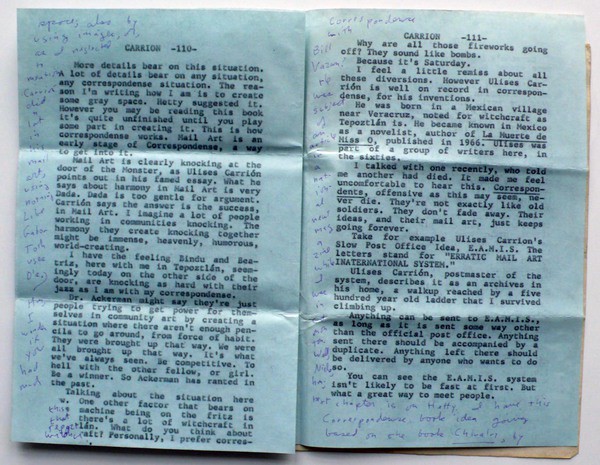 CARRION -110-
More details bear on this situation.
A lot of details bear on any situation,
any correspondense situation. The rea-
son I'm writing how I am is to create
some gray space. Hetty suggested it.
However you may be reading this book
it's quite unfinished until you play
some part in creating it. This is how
correspondense works. Mail Art is an
early stage of Correspondense, a way
to get into it.
Mail Art is clearly knocking at the
door of the Monster, as Ulises Carrión
points out in his famed essay. What he
says about harmony in Mail Art is very
Dada. Dada is too gentle for argument.
Carrión says the answer is the success,
in Mail Art. I imagine a lot of people
working in communities knocking. The
harmony they create knocking together
might be immense, heavenly, humorous,
world-creating.
I have the feeling Bindu and Bea-
triz, here with me in Tepoztlán, seem-
ingly today on the other side of the
door, are knocking as hard with their
jazz as I am with my correspondense.
Dr. Ackerman might say they're just
people trying to get power for them-
selves in community art by creating a
situation where there aren't enough pen-
cils to go around, from force of habit.
They were brought up that way. We were
all brought up that way. It's what
we've always seen. Be competitive. To
hell with the other fellow, or girl.
Be a winner. So Ackerman has ranted in
the past.
Talking about the situation here
w. One other factor that bears on
this machine being on the fritz is
that there's a lot of witchcraft in
Tepoztlán. What do you think about
craft? Personally, I prefer corres-
spaces also by
using images,
Correspondence
with
Bill
CARRION -111-
Why are all those fireworks going
off? They sound like bombs.
Because it's Saturday.
I feel a little remiss about all
these diversions. However Ulises Car-
rión is well on record in correspon-
dense, for his inventions.
He was born in a Mexican village
near Veracruz, noted for witchcraft as
Tepoztlán is. He became known in Mexico
as a novelist, author of La Muerte de
Miss O, published in 1966. Ulises was
part of a group of writers here, in
the sixties.
I talked with one recently, who told
me another had died. It made me feel
uncomfortable to hear this. Correspon-
dents, offensive as this may seem, ne-
ver die. They're not exactly like old
soldiers. They don't fade away. Their
ideas, and their mail art, just keeps
going forever.
Take for example Ulises Carrion's
Slow Post Office idea, E.A.M.I.S. The
letters stand for "ERRATIC MAIL ART
INATERNATIONAL SYSTEM."
Ulises Carrión, postmaster of the
system, describes it as an archives in
his home, a walkup reached by a five
hundred year old ladder that I survived
climbing up.
Anything can be sent to E.A.M.I.S.,
as long as it is sent some way other
than the official post office. Anything
sent there should be accompanied by a
duplicate. Anything left there should
be delivered by anyone who wants to do
so.
You can see the E.A.M.I.S. system
isn't likely to be fast at first. But
what a great way to meet people.
chapter is on Hetty. I have this
Correspondence book idea going
based on the book